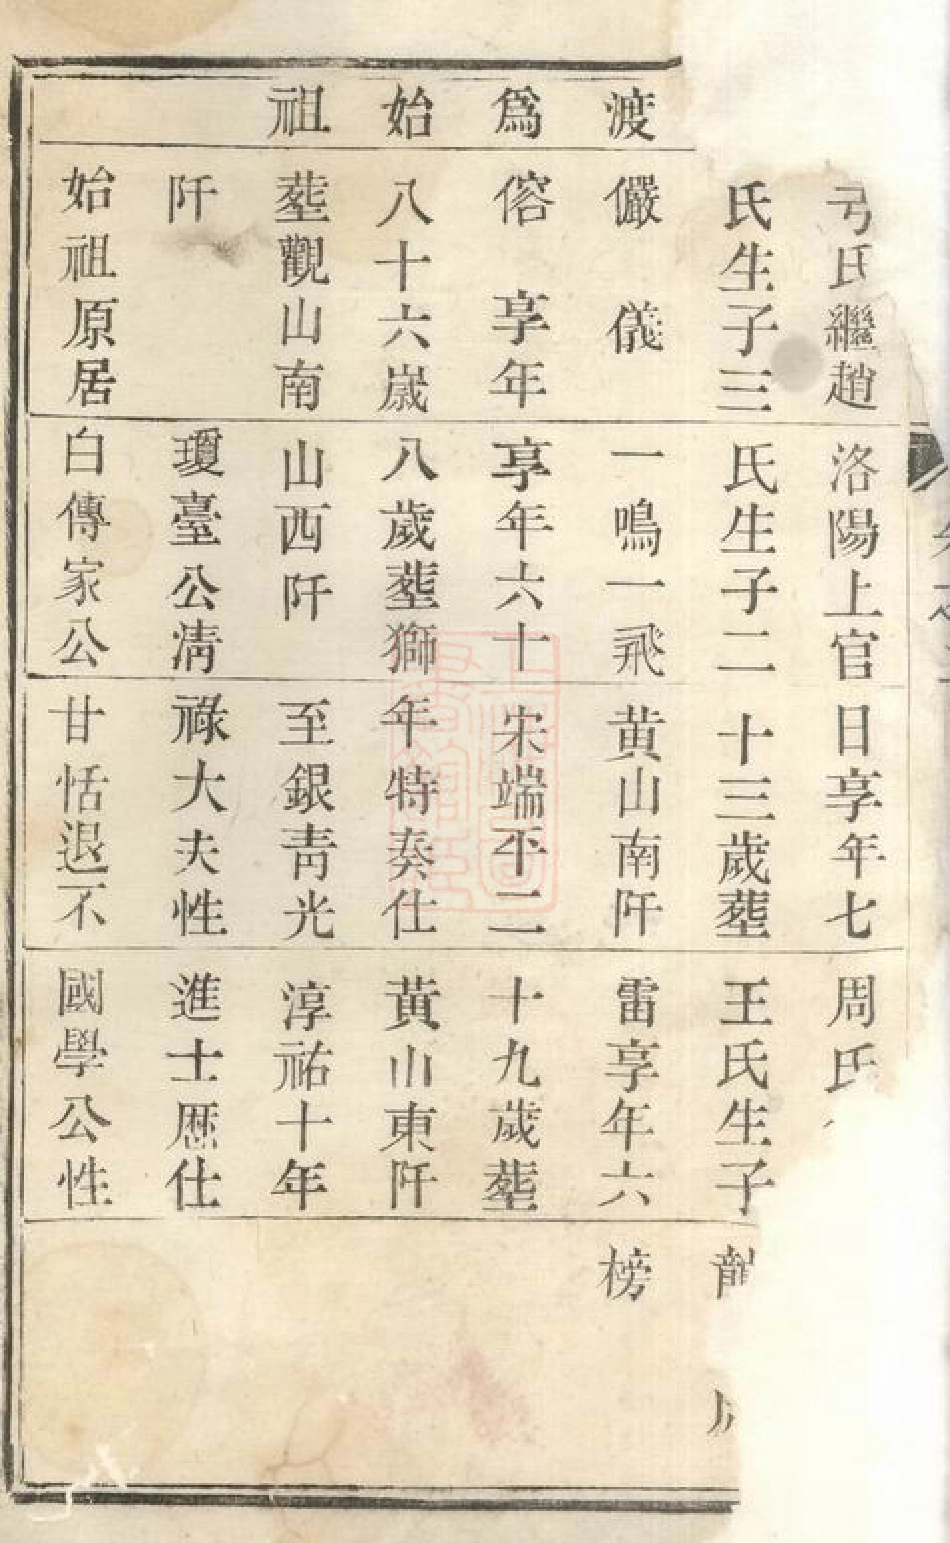 渡
爲
始
祖
弓氏繼趙
氏生子三
儼 儀
傛 享年
八十六歲
塟觀山南
阡
始祖原居
洛陽上官
氏生子二
一鳴一飛
享年六十
八歲塟獅
山西阡
瓊臺公清
白傳家公
日享年七
十三歲塟
黄山南阡
宋端平二
年特奏仕
至銀青光
祿大夫性
甘恬退不
周氏
王氏生子
雷享年六
十九歲塟
黄山東阡
淳祐十年
進士歷仕
國學公性
榜